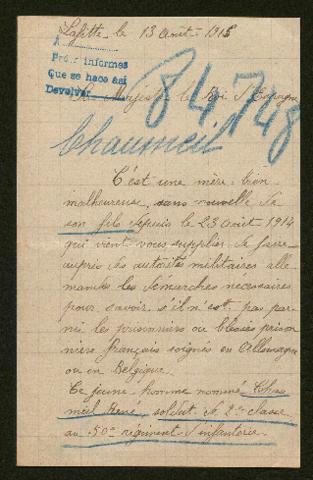 Lafitte, le 13 Août 1915
A
Pedir informes
Que se hace así
Devolver
Sa Majesté le Roi d'Espagne
84.748
Chaumeil
C'est une mère bien
malheureuse, sans nouvelle de
son fils depuis le 23 Août 1914
qui vient vous supplier de faire
auprès des autorités militaires alle-
mandes les démarches nécessaires
pour savoir s'il n'est pas par-
mi les prisonniers ou blessés prison
niers français soignés en Allemagne
ou en Belgique.
Ce jeune homme nommé Chau
meil René, soldat de 2e classe
au 50e régiment d'infanterie.